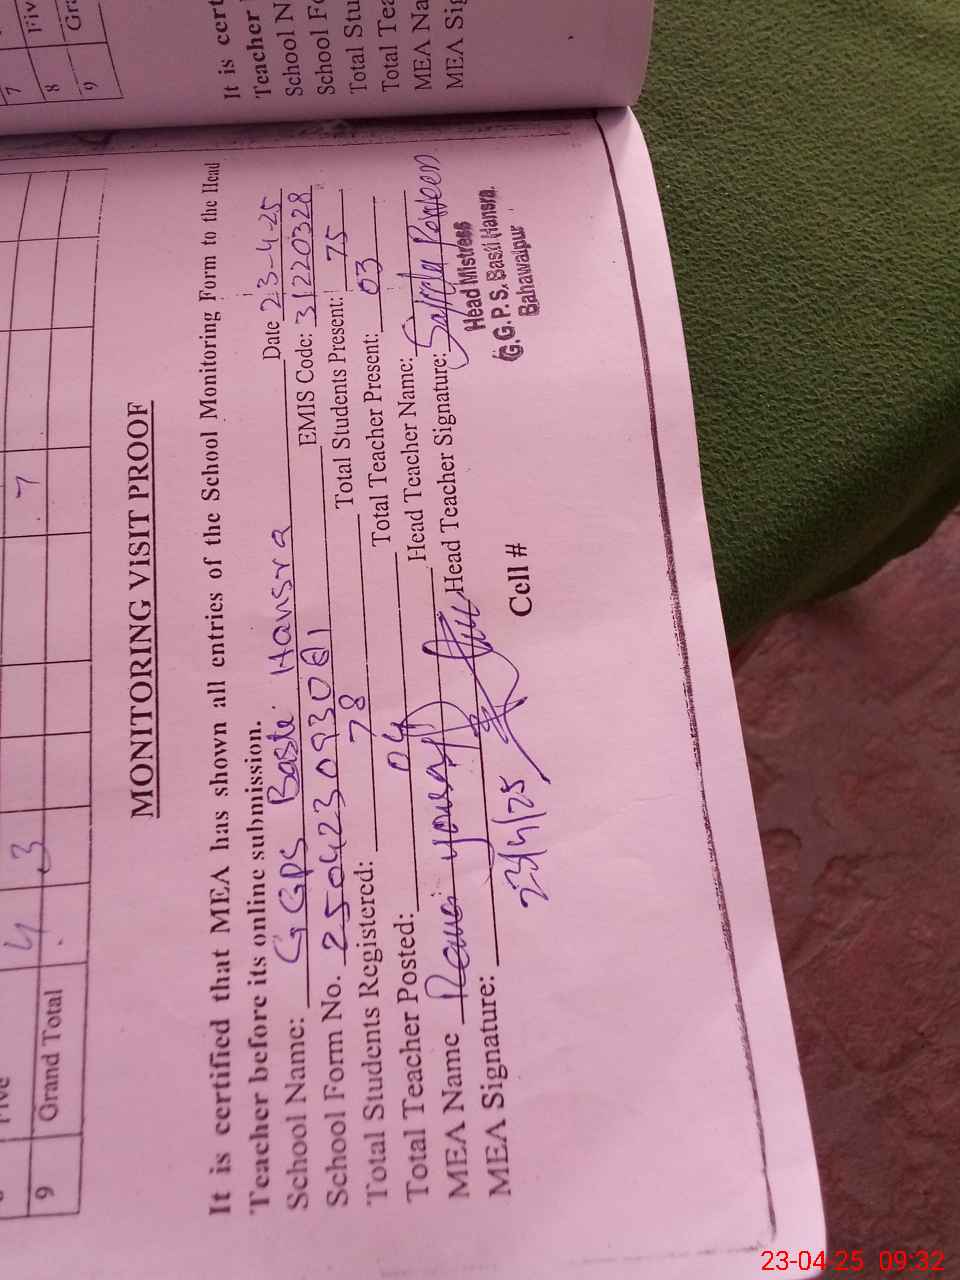 Five
4
9 Grand Total 3 7
MONITORING VISIT PROOF
It is certified that MEA has shown all entries of the School Monitoring Form to the Head
Teacher before its online submission.
School Name: GGPS Basti Hansra Date 23-4-25
School Form No. EMIS Code: 31220328
Total Students Registered: 78 Total Students Present: 75
Total Teacher Posted: 04 Total Teacher Present: 03
MEA Name Head Teacher Name: Sajida Perveen
MEA Signature: Head Teacher Signature:
23/4/25 Cell #
Head Mistress
G.G.P.S. Basti Hansra.
Bahawalpur
7
8 Five
9 Gra
It is cert
Teacher
School N
School Fo
Total Stu
Total Tea
MEA Na
MEA Sig
23-04-25 09:32